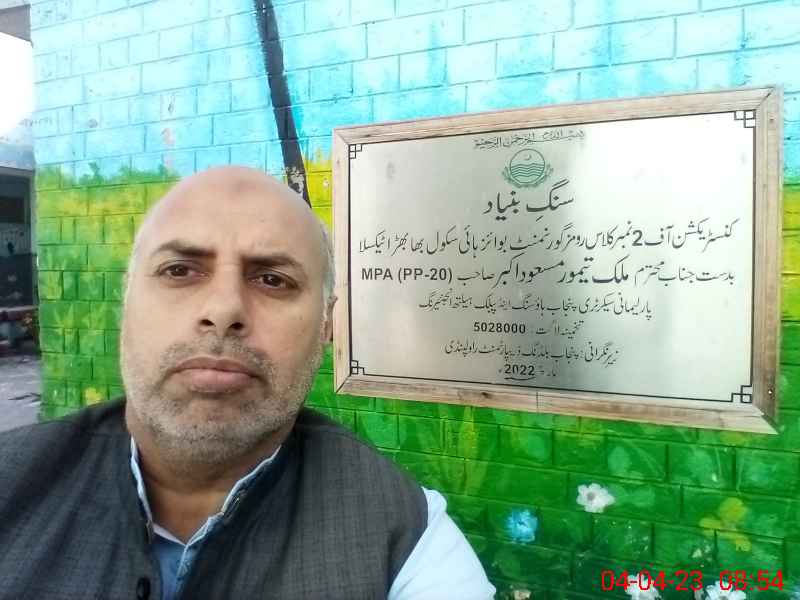 بسم اللہ الرحمن الرحیم
سنگِ بنیاد
کنسٹریکشن آف 2 نمبر کلاس رومز گورنمنٹ بوائز ہائی سکول بھابھڑا ٹیکسلا
بدست جناب محترم ملک تیمور مسعود اکبر صاحب MPA (PP-20)
پارلیمانی سیکرٹری پنجاب ہاؤسنگ اینڈ پبلک ہیلتھ انجینئرنگ
تخمینہ لاگت : 5028000
زیر نگرانی : پنجاب بلڈنگ ڈیپارٹمنٹ راولپنڈی
مارچ 2022ء
04-04-23 08:54